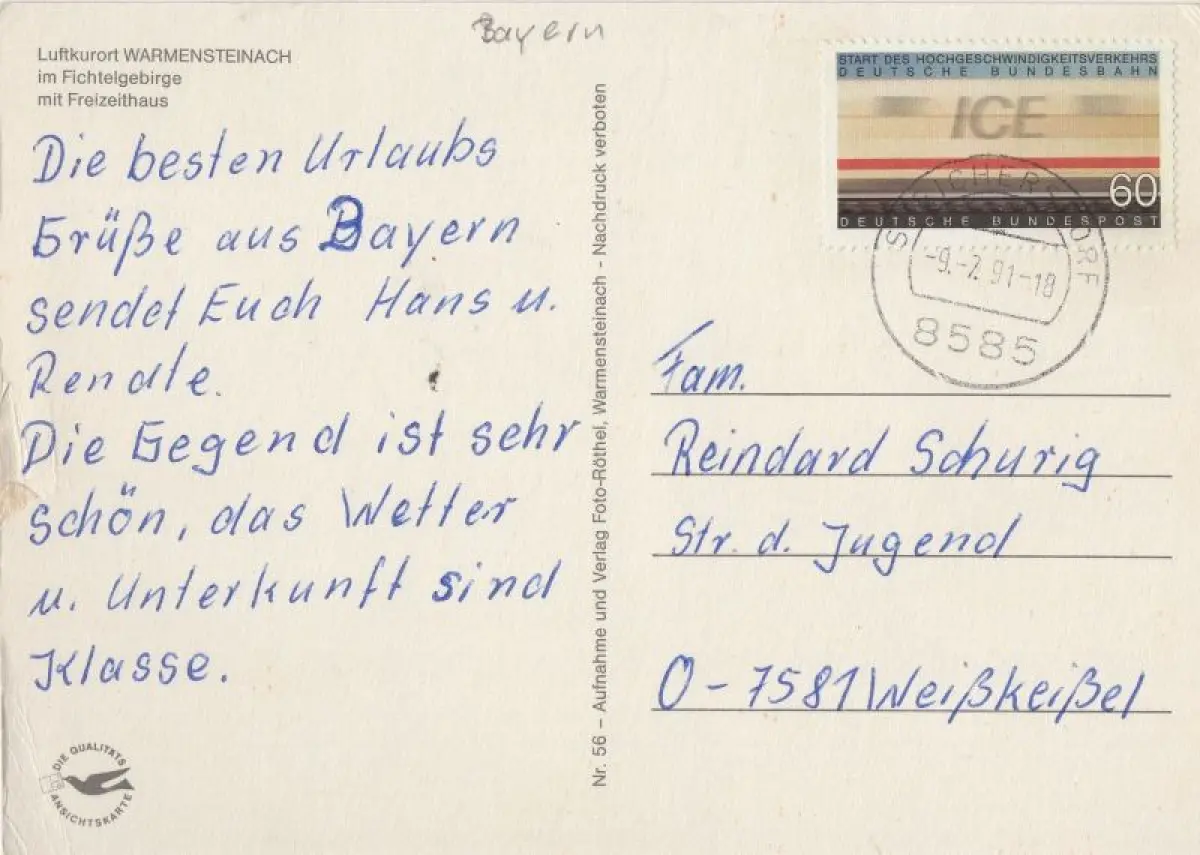 Bayern
Luftkurort WARMENSTEINACH
im Fichtelgebirge
mit Freizeithaus
Die besten Urlaubs
Grüße aus Bayern
sendet Euch Hans u.
Rendle.
Die Gegend ist sehr
schön, das Wetter
u. Unterkunft sind
Klasse.
DIE QUALITÄTS
ANSICHTSKARTE
Nr. 56 – Aufnahme und Verlag Foto-Röthel, Warmensteinach - Nachdruck verboten
START DES HOCHGESCHWINDIGKEITSVERKEHRS
DEUTSCHE BUNDESBAHN
ICE
60
DEUTSCHE BUNDESPOST
-9.-7.91-18
8585
Fam.
Reindard Schurig
Str. d. Jugend
O-7581 Weißkeißel